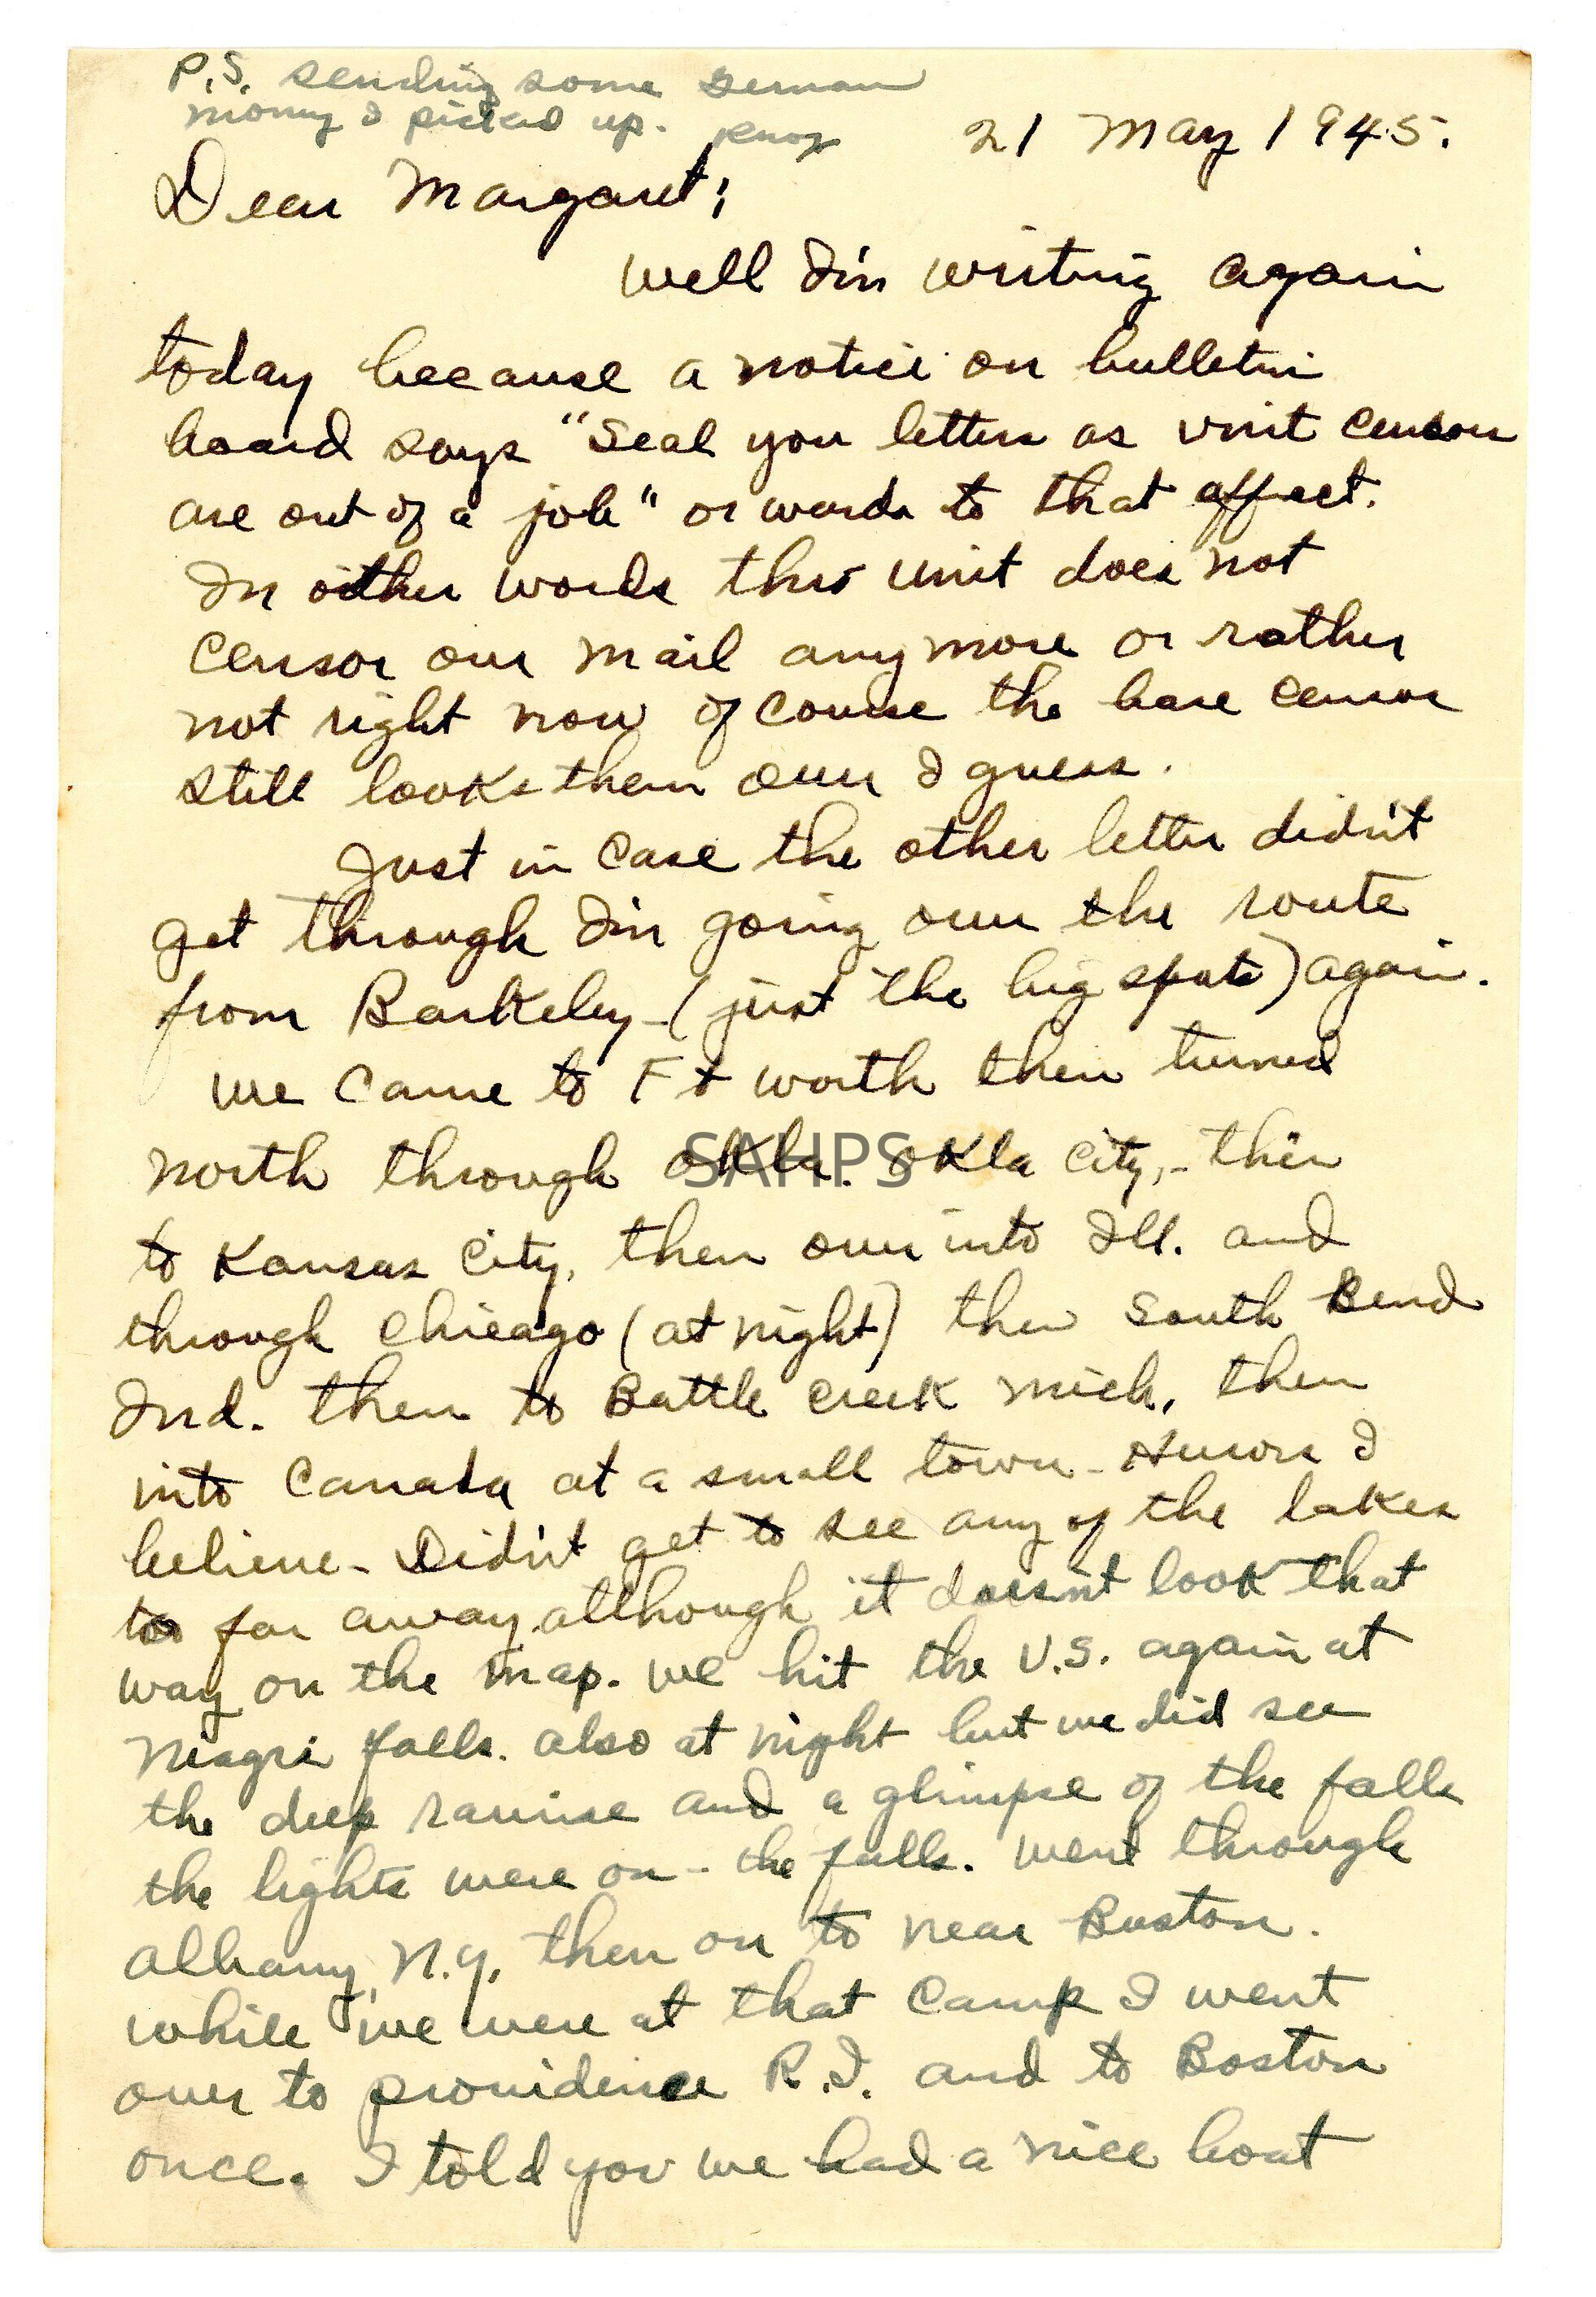 P.S. sending some German
money I picked up. Knox
21 May 1945.
Dear Margaret;
Well I'm writing again
today because a notice on bulletin
board says "Seal you letters as unit censors
are out of a job" or words to that affect.
In other words this unit does not
censor our mail anymore or rather
not right now of course the base censor
still looks them over I guess.
Just in case the other letter didn't
get through I'm going over the route
from Barkeley - (just the big spots) again.
We came to Ft Worth then turned
north through Okla. Okla City, - then
SAHPS
to Kansas City, then over into Ill. and
through Chicago (at night) then South Bend
Ind. then to Battle Creek Mich, then
into Canada at a small town - Huron I
believe - Didn't get to see any of the lakes
too far away although it doesn't look that
way on the map. We hit the U.S. again at
Niagri falls. also at night but we did see
the deep ravine and a glimpse of the falls
the lights were on - the falls. Went through
Albany, N.Y. then on to near Boston.
While we were at that Camp I went
over to providence R.I. and to Boston
once. I told you we had a nice boat